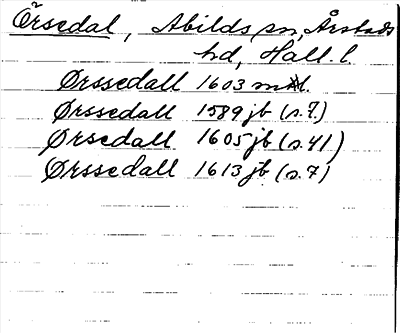 Örsedal, Abilds sn, Årstads
hd, Hall. l.
Ørssedall 1603 mtl.
Ørssedall 1589 jb (s. 7.)
Ørsedall 1605 jb (s. 41)
Ørssedall 1613 jb (s. 7)